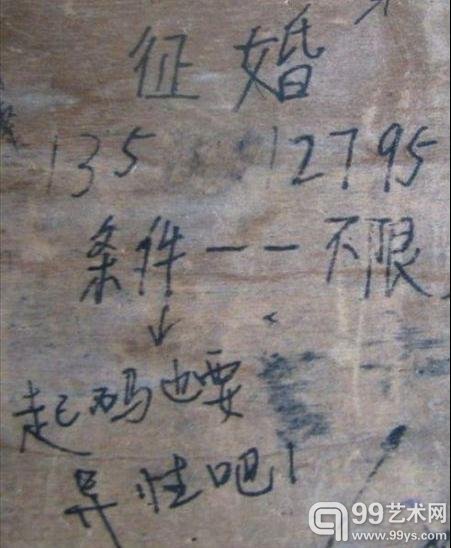 征婚
135 12795
条件——不限
↓
起码也要
异性吧！
99艺术网
www.99ys.com